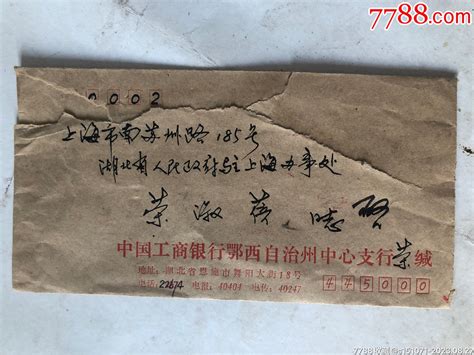 7788.com
0002
上海市南苏州路185号
湖北省人民政府驻上海办事处
荣淑蓓 同志 启
中国工商银行鄂西自治州中心支行荣缄
地址:湖北省恩施市舞阳大街18号
电话:22674 电报:40404 电传:40247
445000